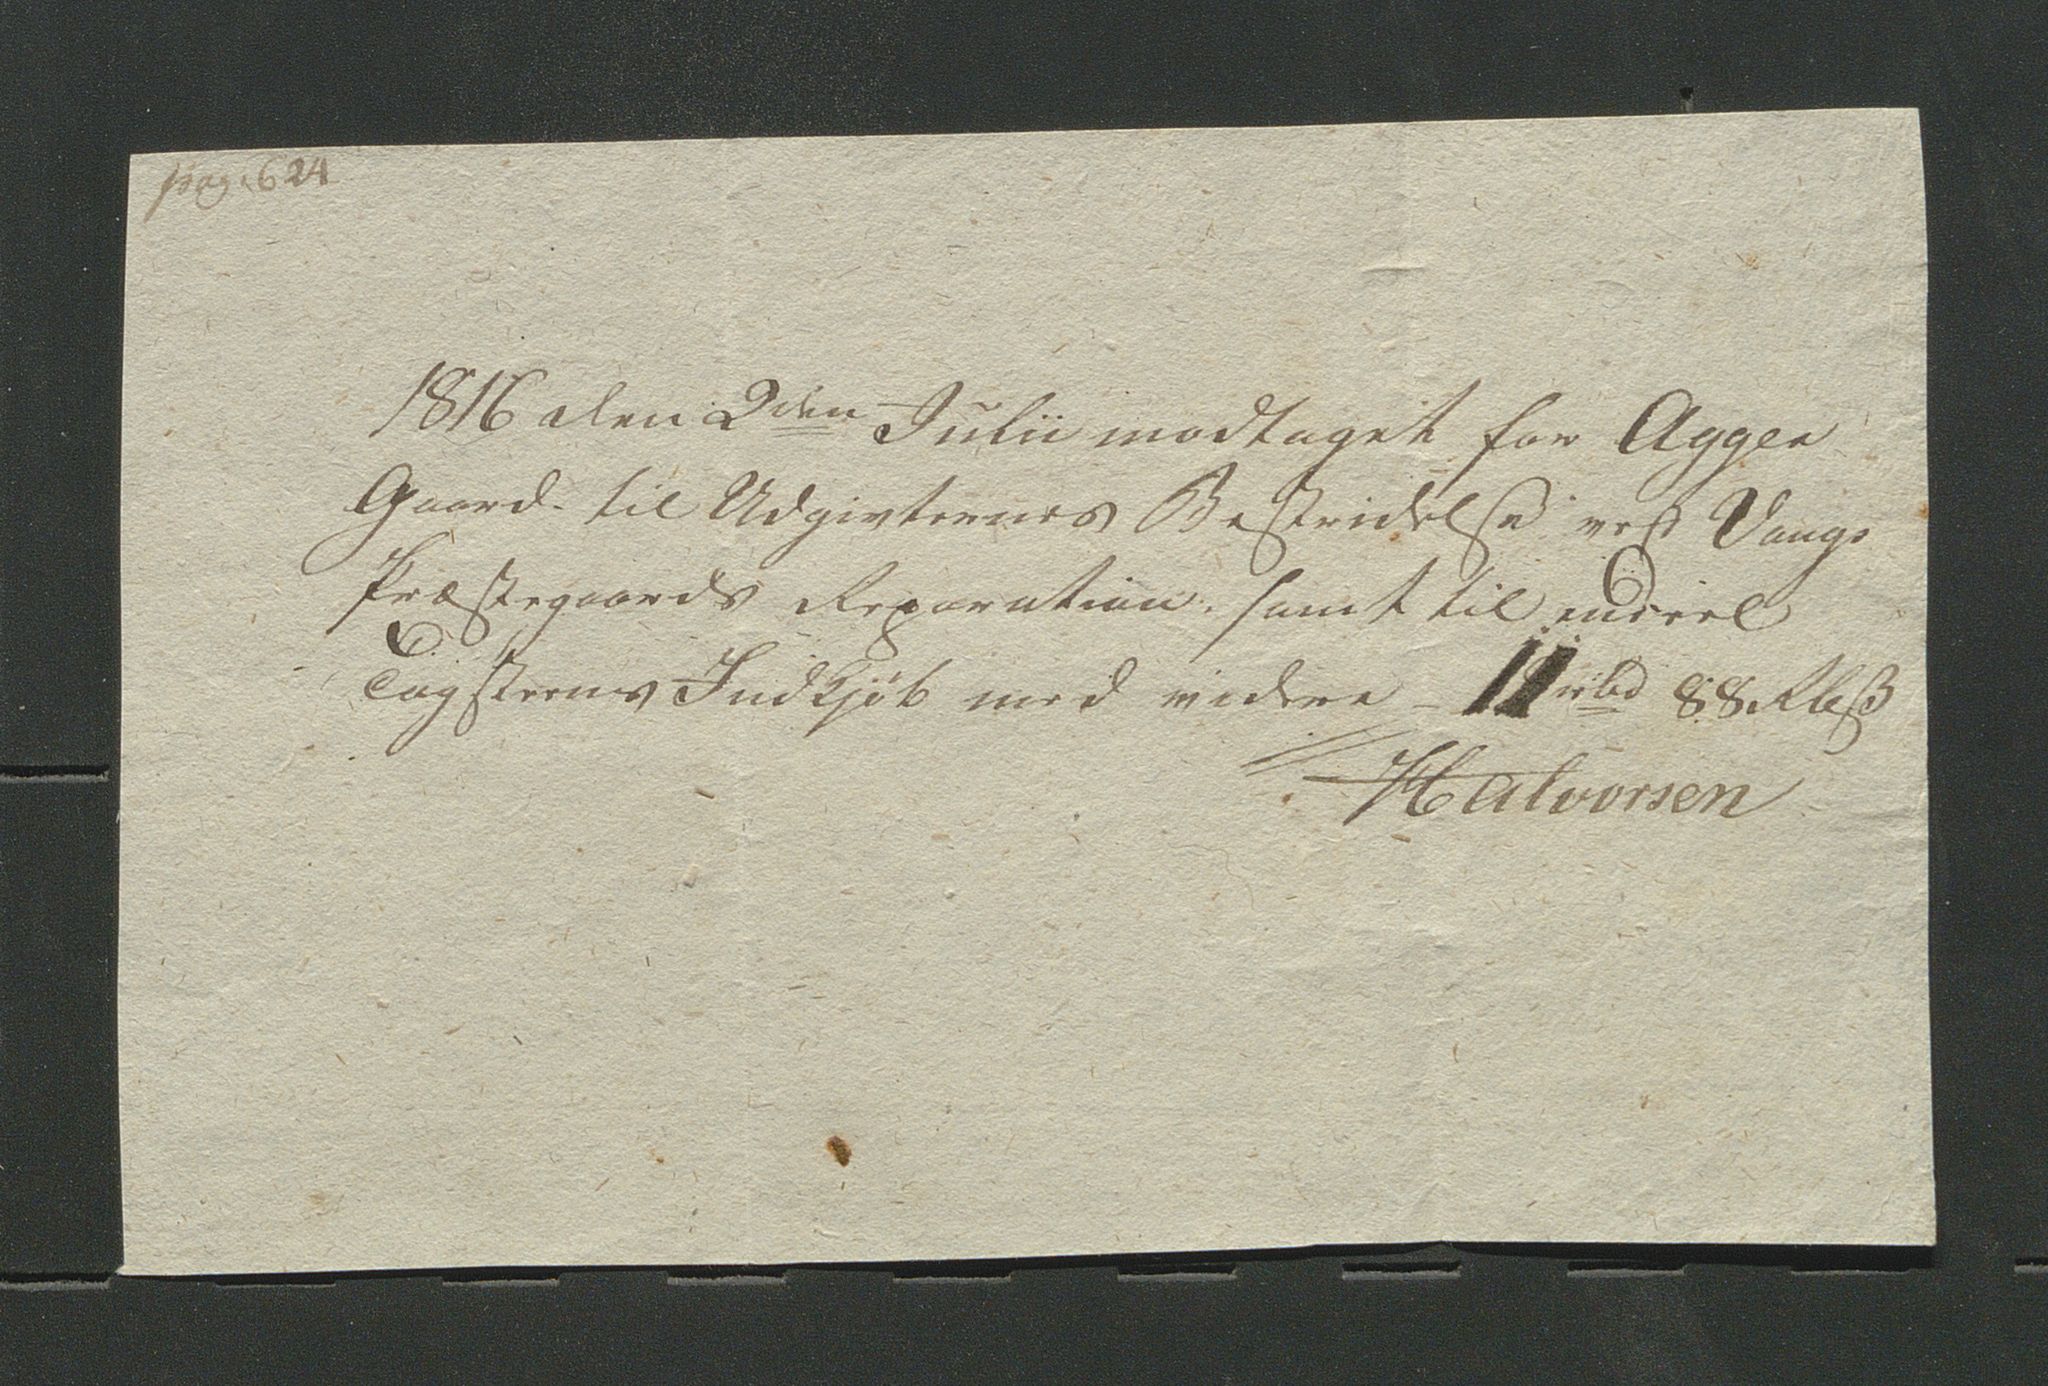 pag: 624
1816 den 2den Julii modtaget for Agger
Gaard til Udgivternes Bestridelse ved Vangs
Præstegaards Reparation, samt til endeel
Tagsteens Indkjøb med videre – 11 rbd 88 Rbß
Halvorsen